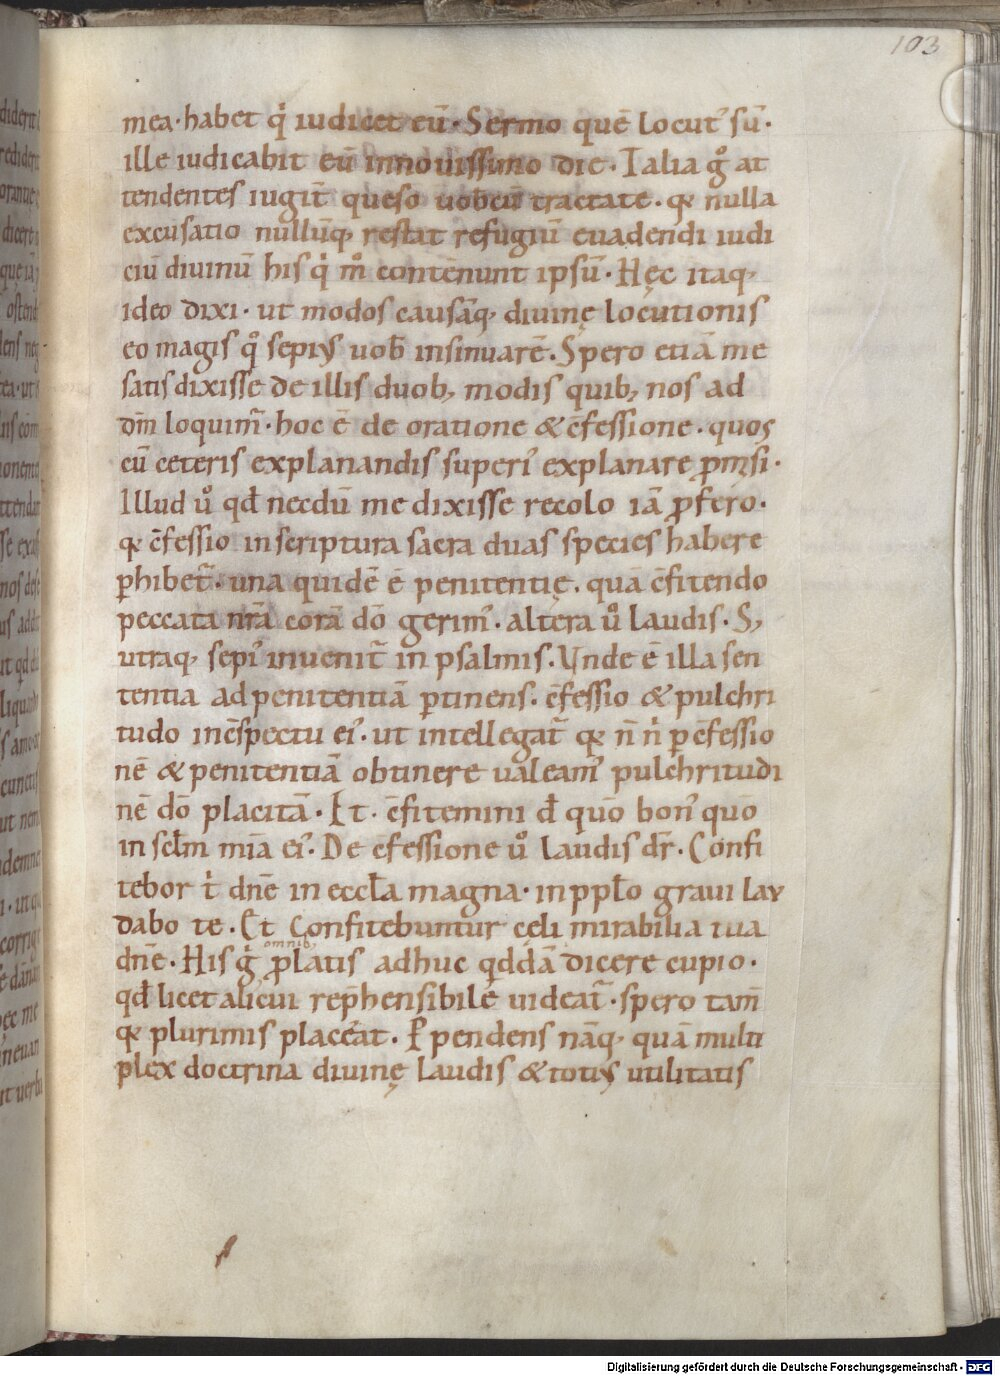 103
mea · habet q̇ iudicet eū · Sermo quē locut᾽ sū ·
ille iudicabit eū in novissimo die · Talia g̊ at
tendentes iugit̄ queso vobcū tractate · qꝫ nulla
excusatio nullūqꝫ restat refugiū evadendi iudi
ciū divinū his q̇ m̊ contēnunt ipsū · Hęc itaqꝫ
ideo dixi · ut modos causāqꝫ divinę locutionis
eo magis q̊ sepiꝰ uob̄ insinuarē · Spero etiā me
satis dixisse de illis duobꝫ modis quibꝫ nos ad
dm̄ loquim̄ · hoc ē de oratione & c̄fessione · quos
cū ceteris explanandis superi᾽ explanare ꝓmisi ·
Illud ů qd̄ necdū me dixisse recolo iā ꝓfero ·
qꝫ c̄fessio in scriptura sacra duas species habere
ꝑhibet̄ · una quidē ē penitentię · quā c̄fitendo
peccata nr̄a corā dō gerim᾽ · altera ů laudis · Sꝫ
utraqꝫ sepi᾽ invenit̄ in psalmis · Unde ē illa sen
tentia ad penitentiā ꝑtinens · c̄fessio & pulchri
tudo in c̄spectu ei᾽ · ut intellegat̄ qꝫ n̄ ṅ ꝑ c̄fessio
nē & penitentiā obtinere valeam᾽ pulchritudi
nē dō placitā · Et · c̄fitemini d̄ quō bon᾽ quō
in sclm̄ mīa ei᾽ · De c̄fessione ů laudis dr̄ · Confi
tebor t̍ dn̄e in eccl̄a magna · in ppl̄o gravi lau
dabo te · Et Confitebuntur cęli mirabilia tua
dn̄e · His ġ omnibꝫ ꝓlatis adhuc qddā dicere cupio ·
qd̄ licet alicui rep̄hensibilē videat̄ · spero tam̄
qꝫ plurimis placeat · Perpendens nāqꝫ quā multi
plex doctrina divinę laudis & totiꝰ utilitatis
Digitalisierung gefördert durch die Deutsche Forschungsgemeinschaft - DFG